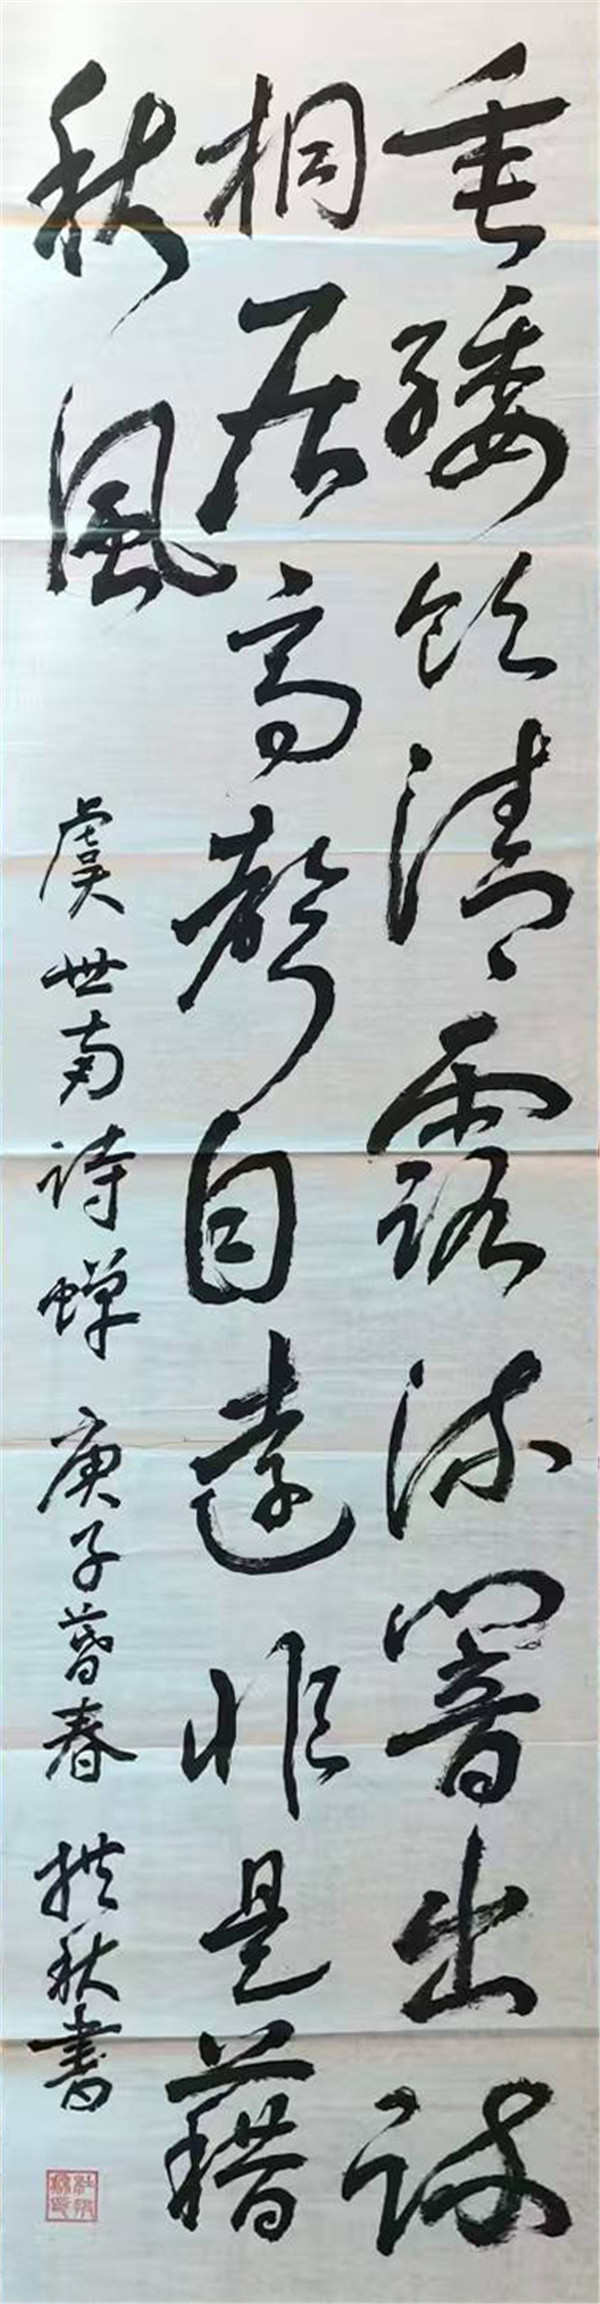 垂緌飲清露流響出疎
桐居高聲自遠非是藉
秋風
虞世南詩蟬 庚子暮春 拱秋書